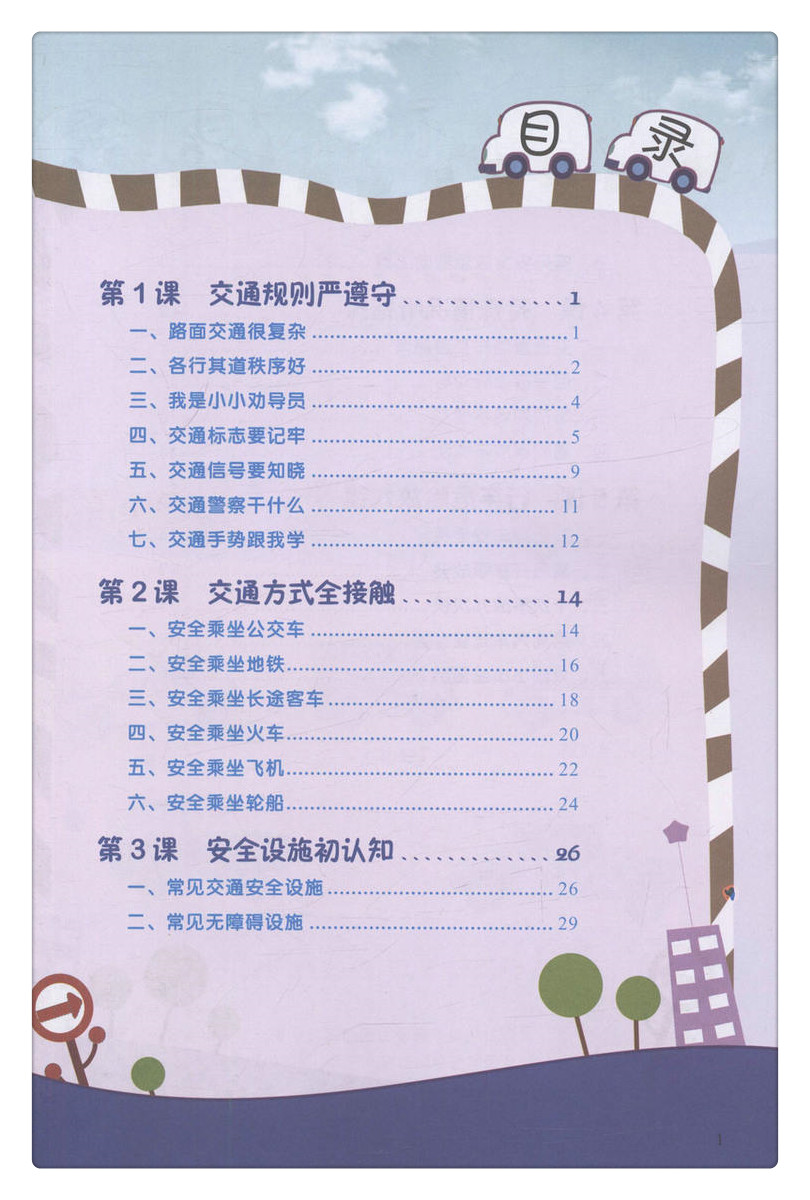 目录
第1课 交通规则严遵守.............1
一、路面交通很复杂.............1
二、各行其道秩序好.............2
三、我是小小劝导员.............4
四、交通标志要记牢.............5
五、交通信号要知晓.............9
六、交通警察干什么.............11
七、交通手势跟我学.............12
第2课 交通方式全接触.............14
一、安全乘坐公交车.............14
二、安全乘坐地铁.............16
三、安全乘坐长途客车.............18
四、安全乘坐火车.............20
五、安全乘坐飞机.............22
六、安全乘坐轮船.............24
第3课 安全设施初认知.............26
一、常见交通安全设施.............26
二、常见无障碍设施.............29
1